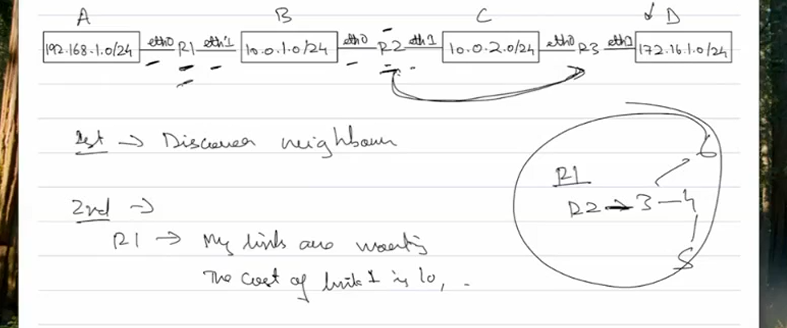 A B C D
192.168.1.0/24 eth0 R1 eth1 10.0.1.0/24 eth0 R2 eth1 10.0.2.0/24 eth0 R3 eth1 172.16.1.0/24
1st → Discover neighbour
R1
R2 → 3 - 4
6
5
2nd →
R1 → My links are working
The cost of link 1 is 10,